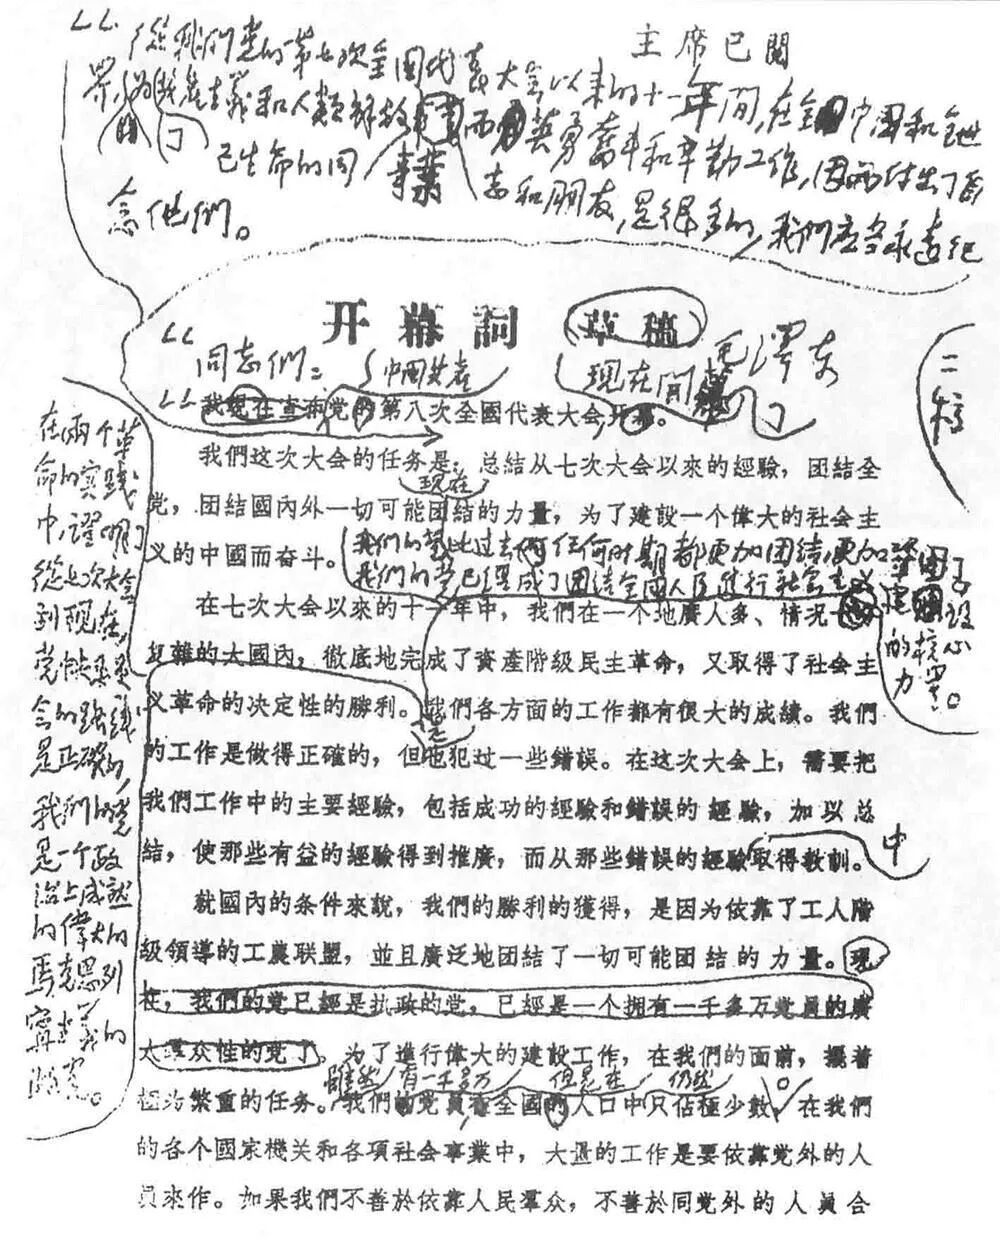 主席已閱
從我們党的第七次全国代表大会以来的十一年間，在全中国和全世
界，为共產主義和人類解放事業而英勇奮斗和辛勤工作，因而付出了自
己生命的同志和朋友，是很多的，我們应当永遠紀
念他們。
开幕詞 草稿
毛澤东
二稿
同志們：
中國共產
現在開幕了
我現在宣布党的第八次全國代表大会开幕。
我們这次大会的任务是：总結从七次大会以來的經驗，团結全
現在
党，团結國內外一切可能团結的力量，为了建設一个偉大的社会主
义的中國而奋斗。
我們的党比过去任何时期都更加团結，更加鞏固了
我們的党已經成了团結全國人民進行社会主义建設的核心力量。
在七次大会以來的十一年中，我們在一个地廣人多、情況
复雜的大國內，徹底地完成了資產階級民主革命，又取得了社会主
义革命的决定性的勝利。我們各方面的工作都有很大的成績。我們
的工作是做得正確的，但也犯过一些錯誤。在这次大会上，需要把
我們工作中的主要經驗，包括成功的經驗和錯誤的經驗，加以总
結，使那些有益的經驗得到推廣，而从那些錯誤的經驗取得教訓。
中
就國內的条件來說，我們的勝利的獲得，是因为依靠了工人階
級領導的工農联盟，並且廣泛地团結了一切可能团結的力量。現
在，我們的党已經是执政的党，已經是一个拥有一千多万党員的廣
大羣众性的党了。为了進行偉大的建設工作，在我們的面前，擺着
雖然 有一千多万 但是在 仍然
極为繁重的任务。我們的党員在全國的人口中只佔極少數，在我們
的各个國家機关和各項社会事業中，大量的工作是要依靠党外的人
員來作。如果我們不善於依靠人民羣众，不善於同党外的人員合
在兩个革
命的实践
中，證明了
從七次大会
到現在，
党中央委員
会的路線
是正確的，
我們的党
是一个政
治上成熟
的偉大的
馬克思列
寧主義的
政党。